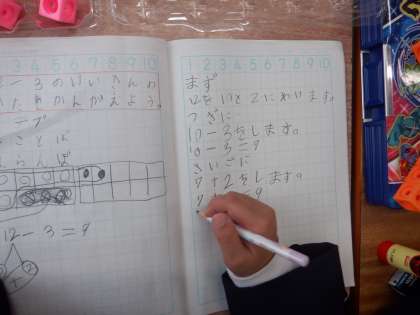 3 4 5 6 7 8 9 10
ー3のけいさんの
かたをかんがえよう。
ープ
ことば
くらんぼ
12-3=9
1 2 3 4 5 6 7 8 9 10
まず
12を10と2にわけます。
つぎに
10-3をします。
10-3=7
さいごに
7+2をします。
7
9